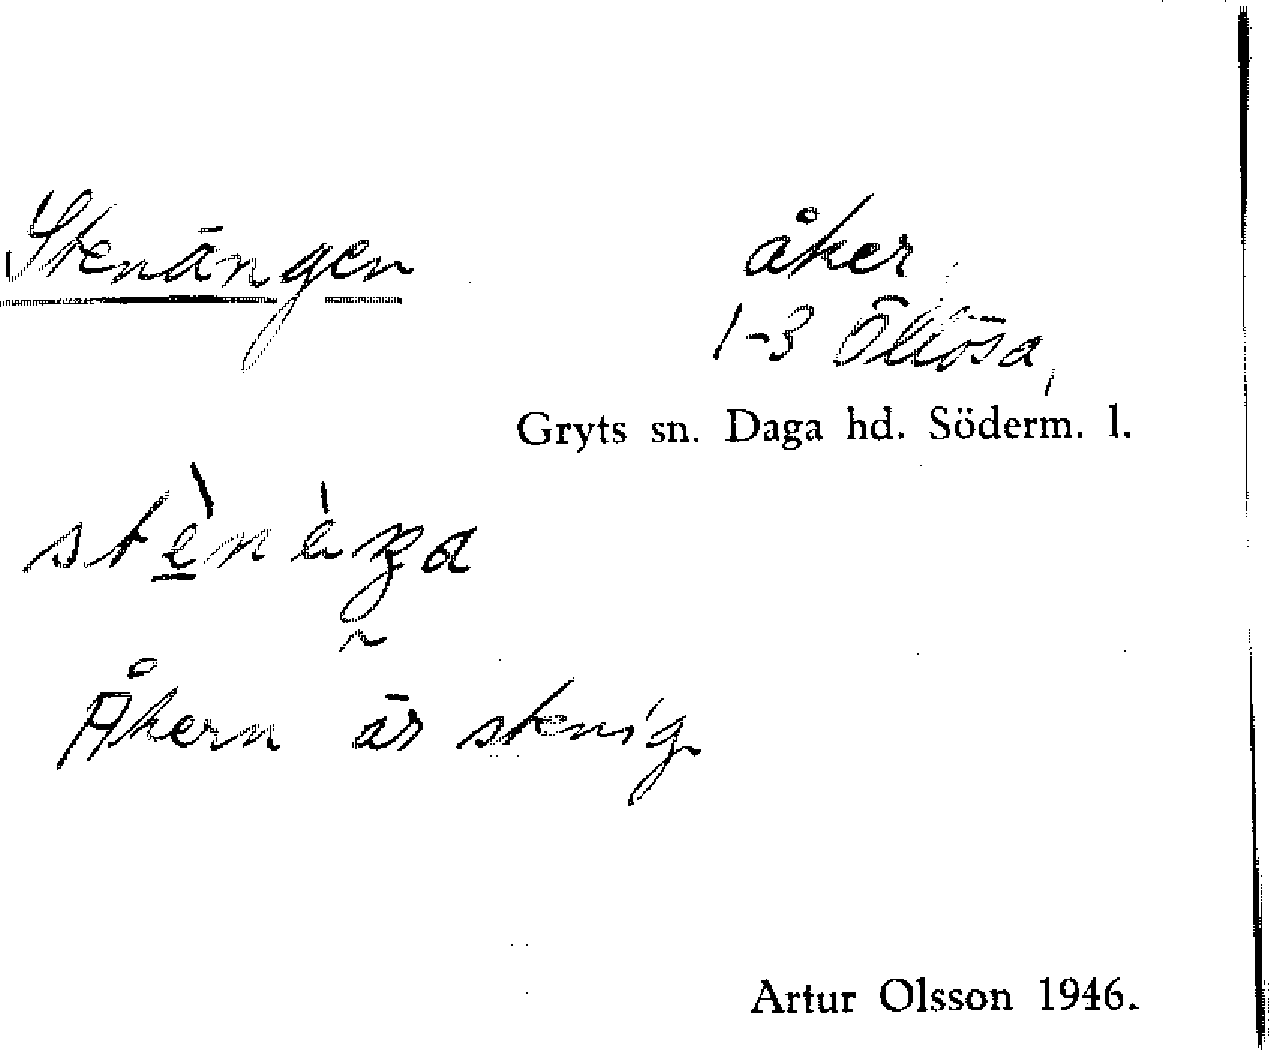 Stenängen
åker
1-3 Öllösa,
Gryts sn. Daga hd. Söderm. l.
Åkern är stenig
Artur Olsson 1946.